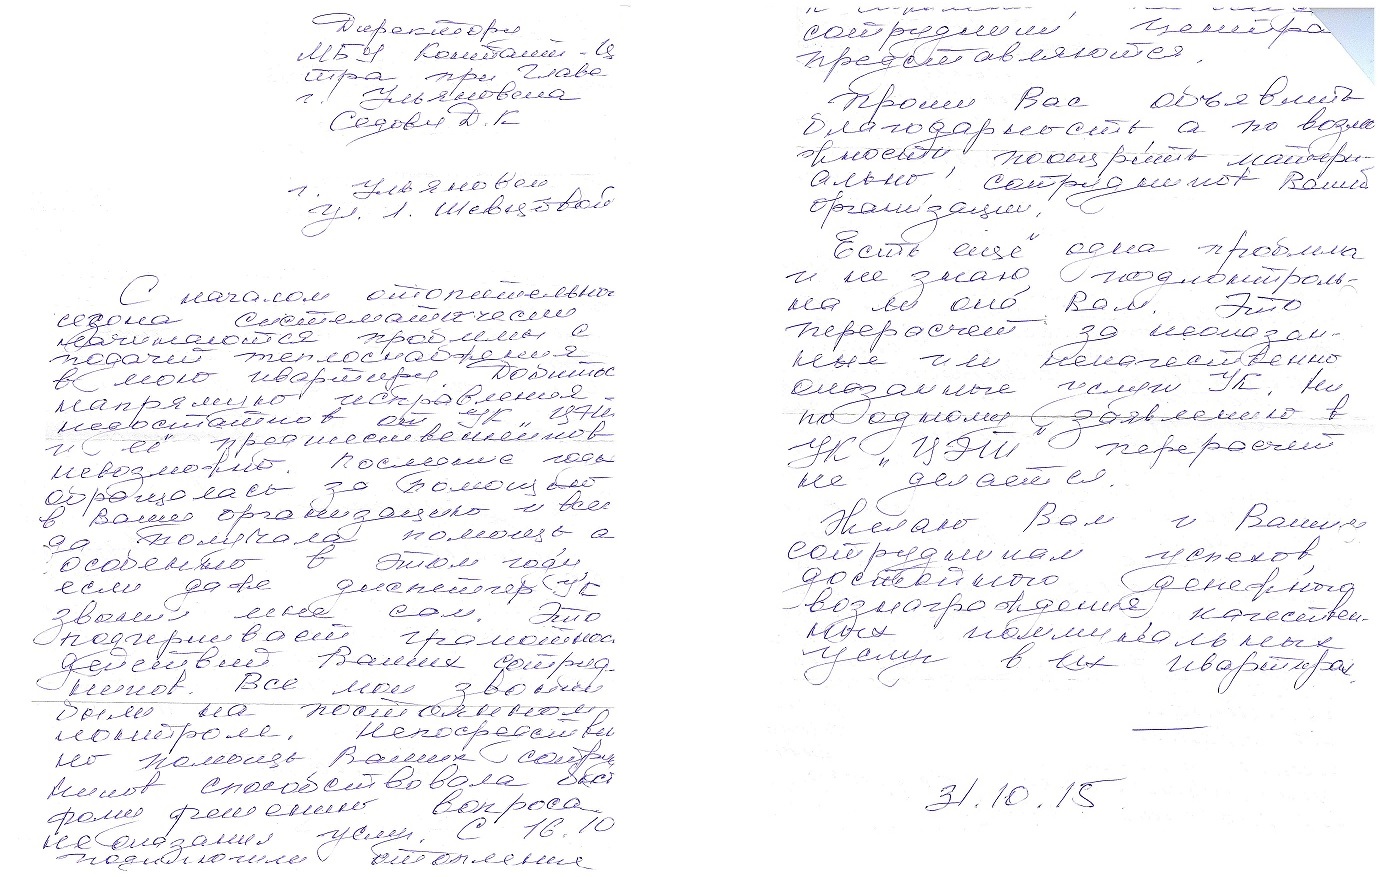 Директору
МБУ Контакт-Це
тра при Главе
г. Ульяновска
Седову Д.К
г. Ульяновск
ул. Л. Шевцовой
С началом отопительног
сезона систематически
начинаются проблемы с
подачей теплоснабжения
в мою квартиру. Добитьс
напрямую исправления
недостатков от УК "ЦЭТ"
и её предшественников
невозможно. Последние годы
обращалась за помощью
в Вашу организацию и все
да получала помощь а
особенно в этом году
если даже диспетчер УК
звонил мне сам. Это
подчеркивает грамотнос
действий Ваших сотруд-
ников. Все мои звонки
были на постоянном
контроле. Непосредствен
но помощь Ваших сотруд
ников способствовала быст
рому решению вопроса
не оказания услуг. С 16.10
подключили отопление
сотрудники центра
представляются.
Прошу Вас объявить
благодарность а по возмо
жности поощрить матери-
ально, сотрудников Вашей
организации.
Есть ещё одна проблема
и не знаю подконтроль-
на ли она Вам. Это
перерасчет за неоказан-
ные или некачественно
оказанные услуги УК. Ни
по одному заявлению в
УК "ЦЭТ" перерасчет
не делается.
Желаю Вам и Вашим
сотрудникам успехов,
достойного денежного
вознаграждения, качествен-
ных коммунальных
услуг в их квартирах.
31.10.15